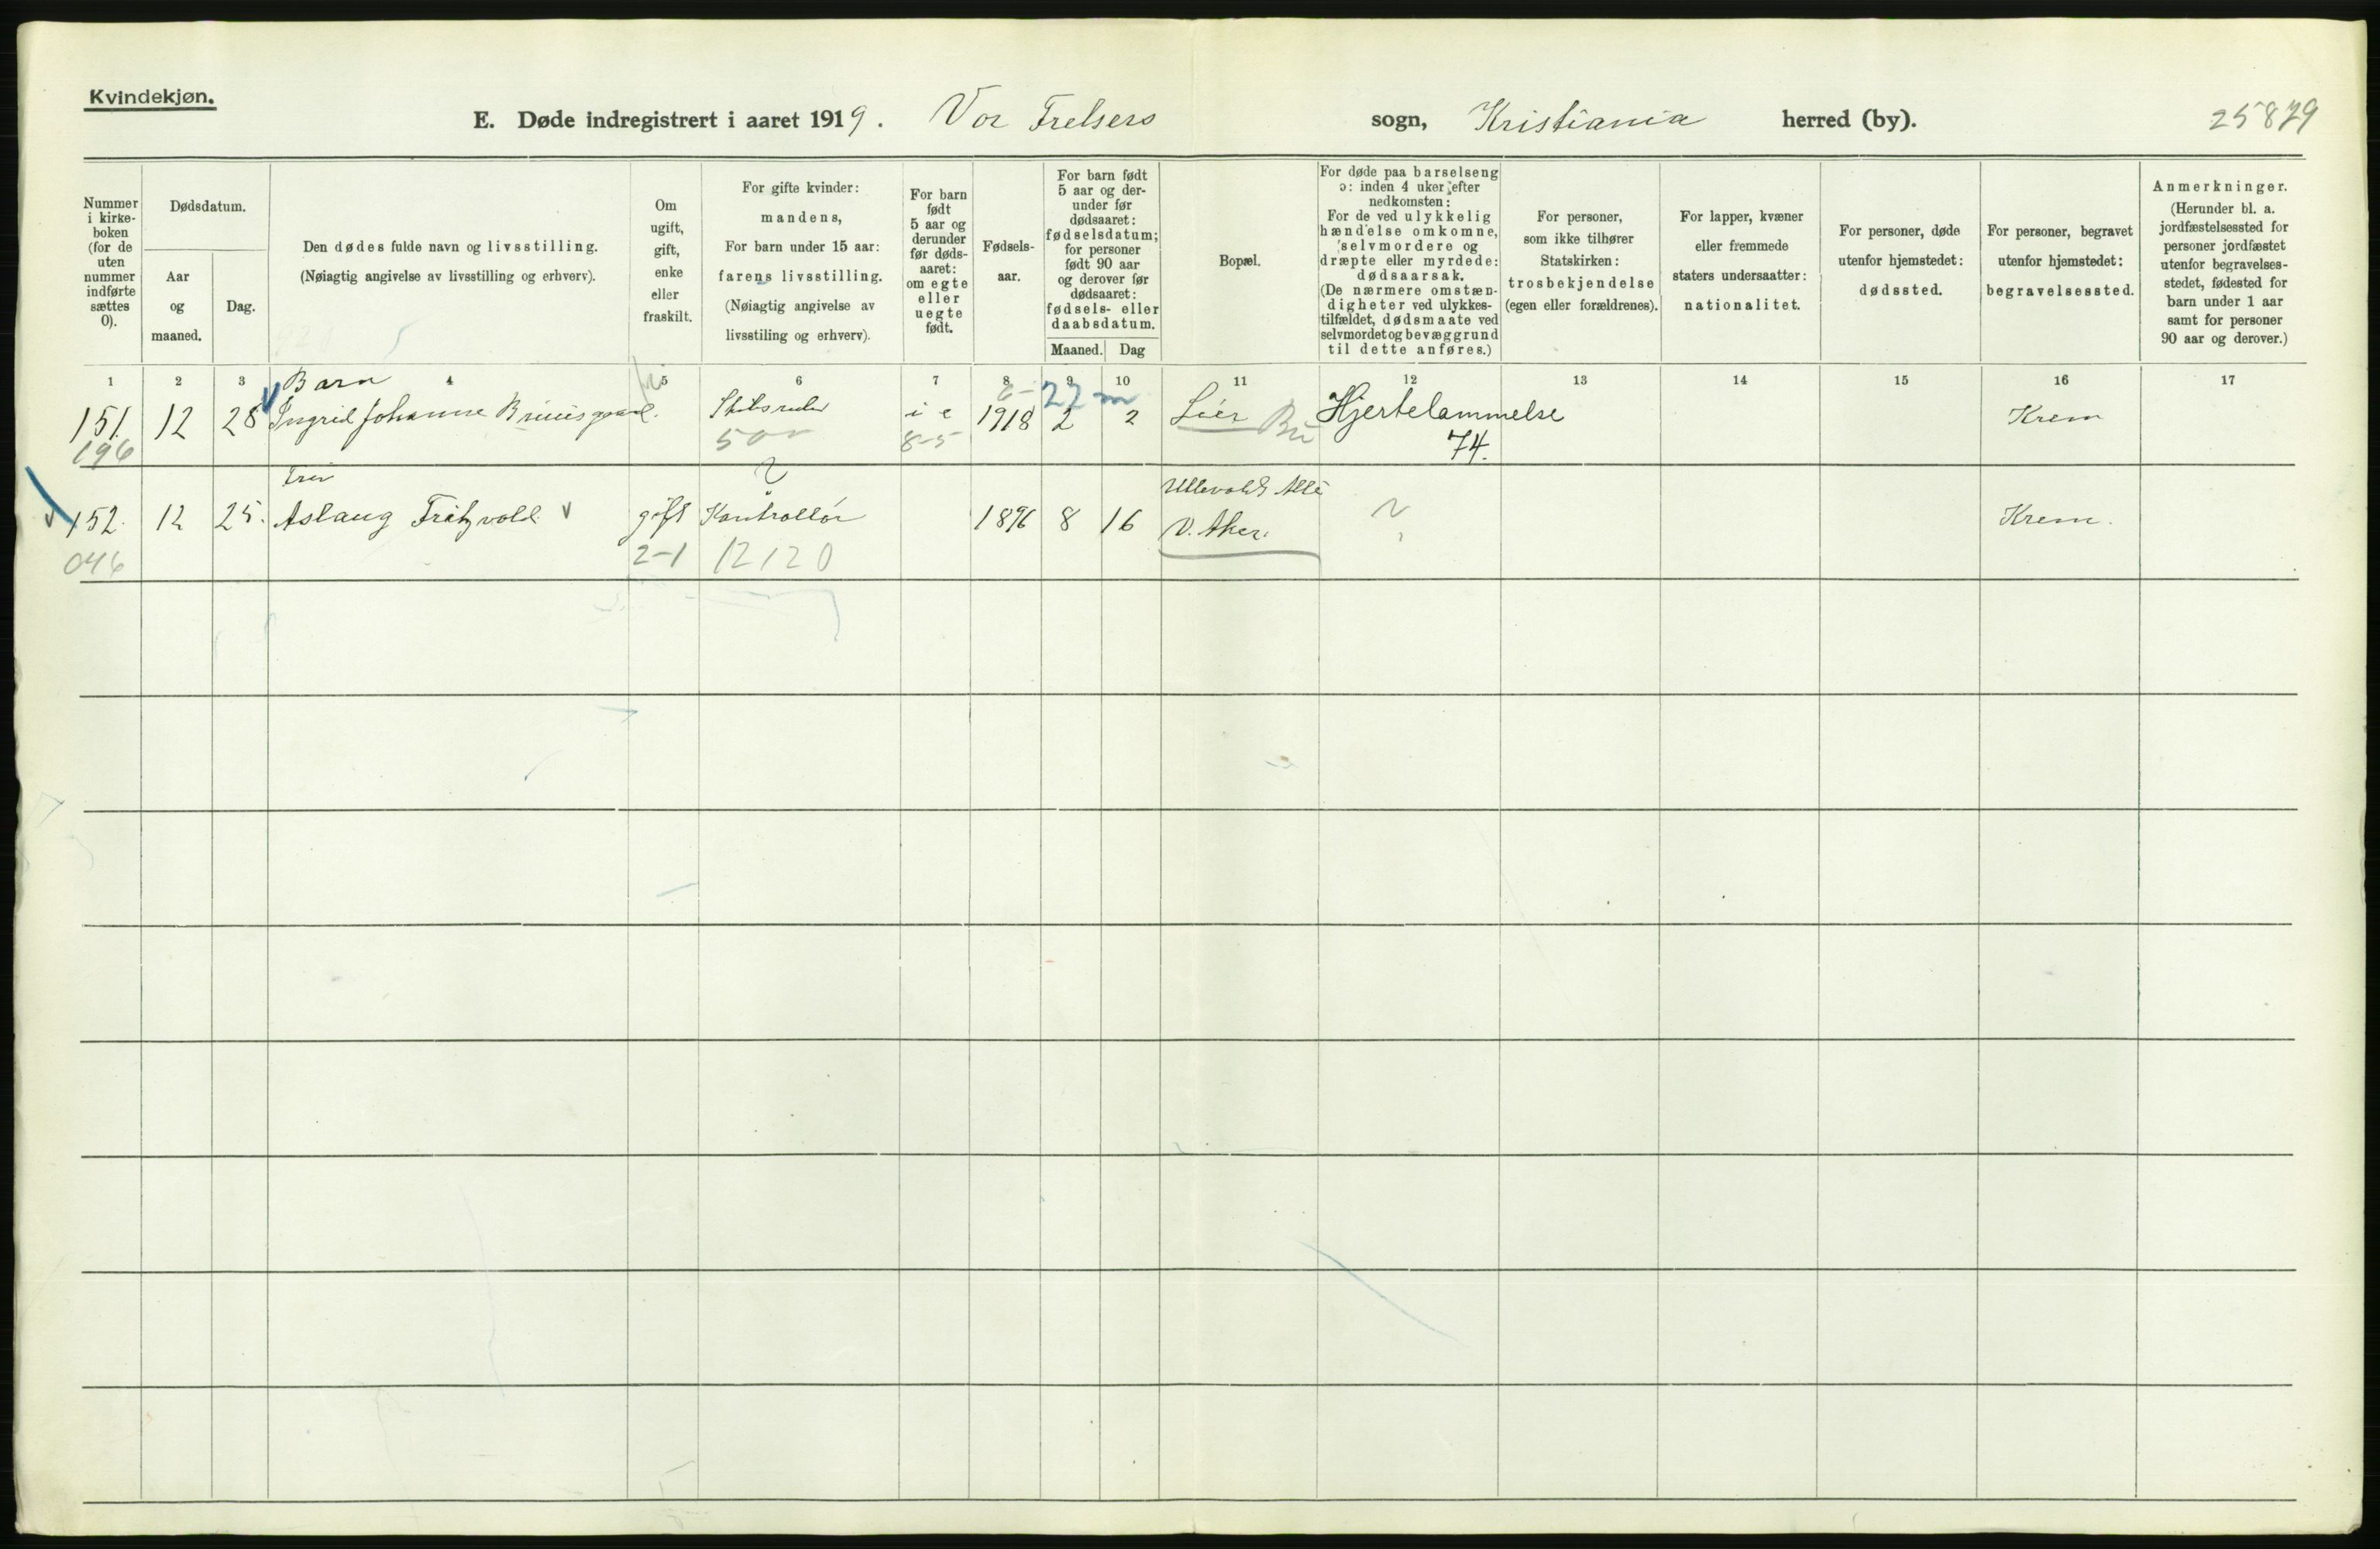 Kvindekjøn.
E. Døde indregistrert i aaret 1919. Vor Frelsers sogn, Kristiania herred (by). 25879
Nummer i kirkeboken (for de uten nummer indførte sættes 0).
Dødsdatum.
Aar og maaned.
Dag.
Den dødes fulde navn og livsstilling.
(Nøiagtig angivelse av livsstilling og erhverv).
Om ugift, gift, enke eller fraskilt.
For gifte kvinder:
mandens,
For barn under 15 aar:
farens livsstilling.
(Nøiagtig angivelse av
livsstiling og erhverv).
For barn født 5 aar og derunder før dødsaaret: om egte eller uegte født.
Fødselsaar.
For barn født 5 aar og derunder før dødsaaret: fødselsdatum; for personer født 90 aar og derover før dødsaaret: fødsels- eller daabsdatum.
Maaned. Dag
Bopæl.
For døde paa barselseng ɔ: inden 4 uker efter nedkomsten:
For de ved ulykkelig hændelse omkomne, selvmordere og dræpte eller myrdede: dødsaarsak.
(De nærmere omstændigheter ved ulykkestilfældet, dødsmaate ved selvmordet og bevæggrund til dette anføres.)
For personer, som ikke tilhører Statskirken: trosbekjendelse (egen eller forældrenes).
For lapper, kvæner eller fremmede staters undersaatter: nationalitet.
For personer, døde utenfor hjemstedet: dødssted.
For personer, begravet utenfor hjemstedet: begravelsessted.
Anmerkninger.
(Herunder bl. a. jordfæstelsessted for personer jordfæstet utenfor begravelsesstedet, fødested for barn under 1 aar samt for personer 90 aar og derover.)
1 2 3 4 5 6 7 8 9 10 11 12 13 14 15 16 17
Barn 22 m
151. 12 28 Ingrid Johanne Bruusgaard. Skibsreder i e 1918 2 2 Lier Bu Hjertelammelse Krem
196 500 8-5 74.
Frue Ullevolds Alle
152. 12 25. Aslaug Fritzvold gift Kontrollør 1896 8 16 V. Aker. ? Krem.
046 2-1 12120